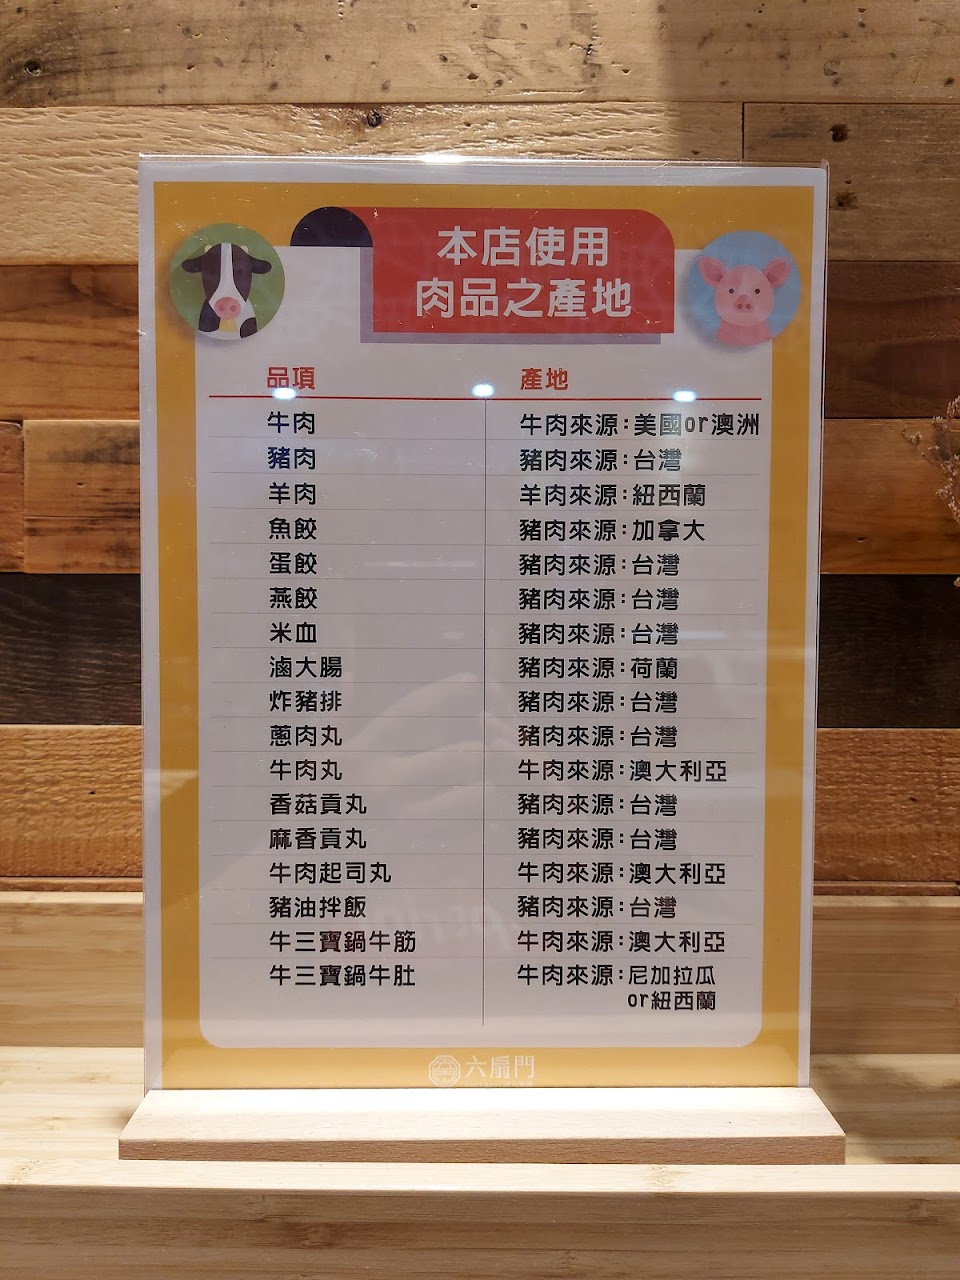 本店使用
肉品之產地
品項 產地
牛肉 牛肉來源:美國or澳洲
豬肉 豬肉來源:台灣
羊肉 羊肉來源:紐西蘭
魚餃 豬肉來源:加拿大
蛋餃 豬肉來源:台灣
燕餃 豬肉來源:台灣
米血 豬肉來源:台灣
滷大腸 豬肉來源:荷蘭
炸豬排 豬肉來源:台灣
蔥肉丸 豬肉來源:台灣
牛肉丸 牛肉來源:澳大利亞
香菇貢丸 豬肉來源:台灣
麻香貢丸 豬肉來源:台灣
牛肉起司丸 牛肉來源:澳大利亞
豬油拌飯 豬肉來源:台灣
牛三寶鍋牛筋 牛肉來源:澳大利亞
牛三寶鍋牛肚 牛肉來源:尼加拉瓜
or紐西蘭
六扇門